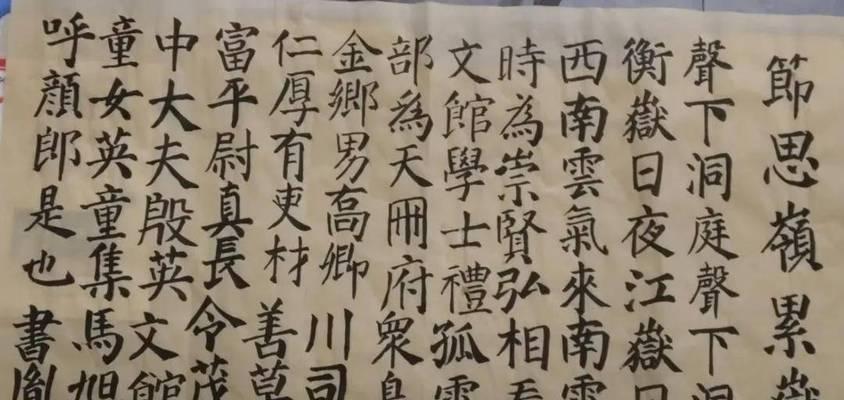 節思嶺累
聲下洞庭聲下洞
衡嶽日夜江嶽日
西南雲氣來南雲
時為崇賢弘相看
文館學士禮孤雲
部為天冊府衆鳥
金鄉男高卿川司
仁厚有吏材善草
富平尉真長令茂
中大夫殷英文館
童女英童集馬旭
呼顏郎是也書胤